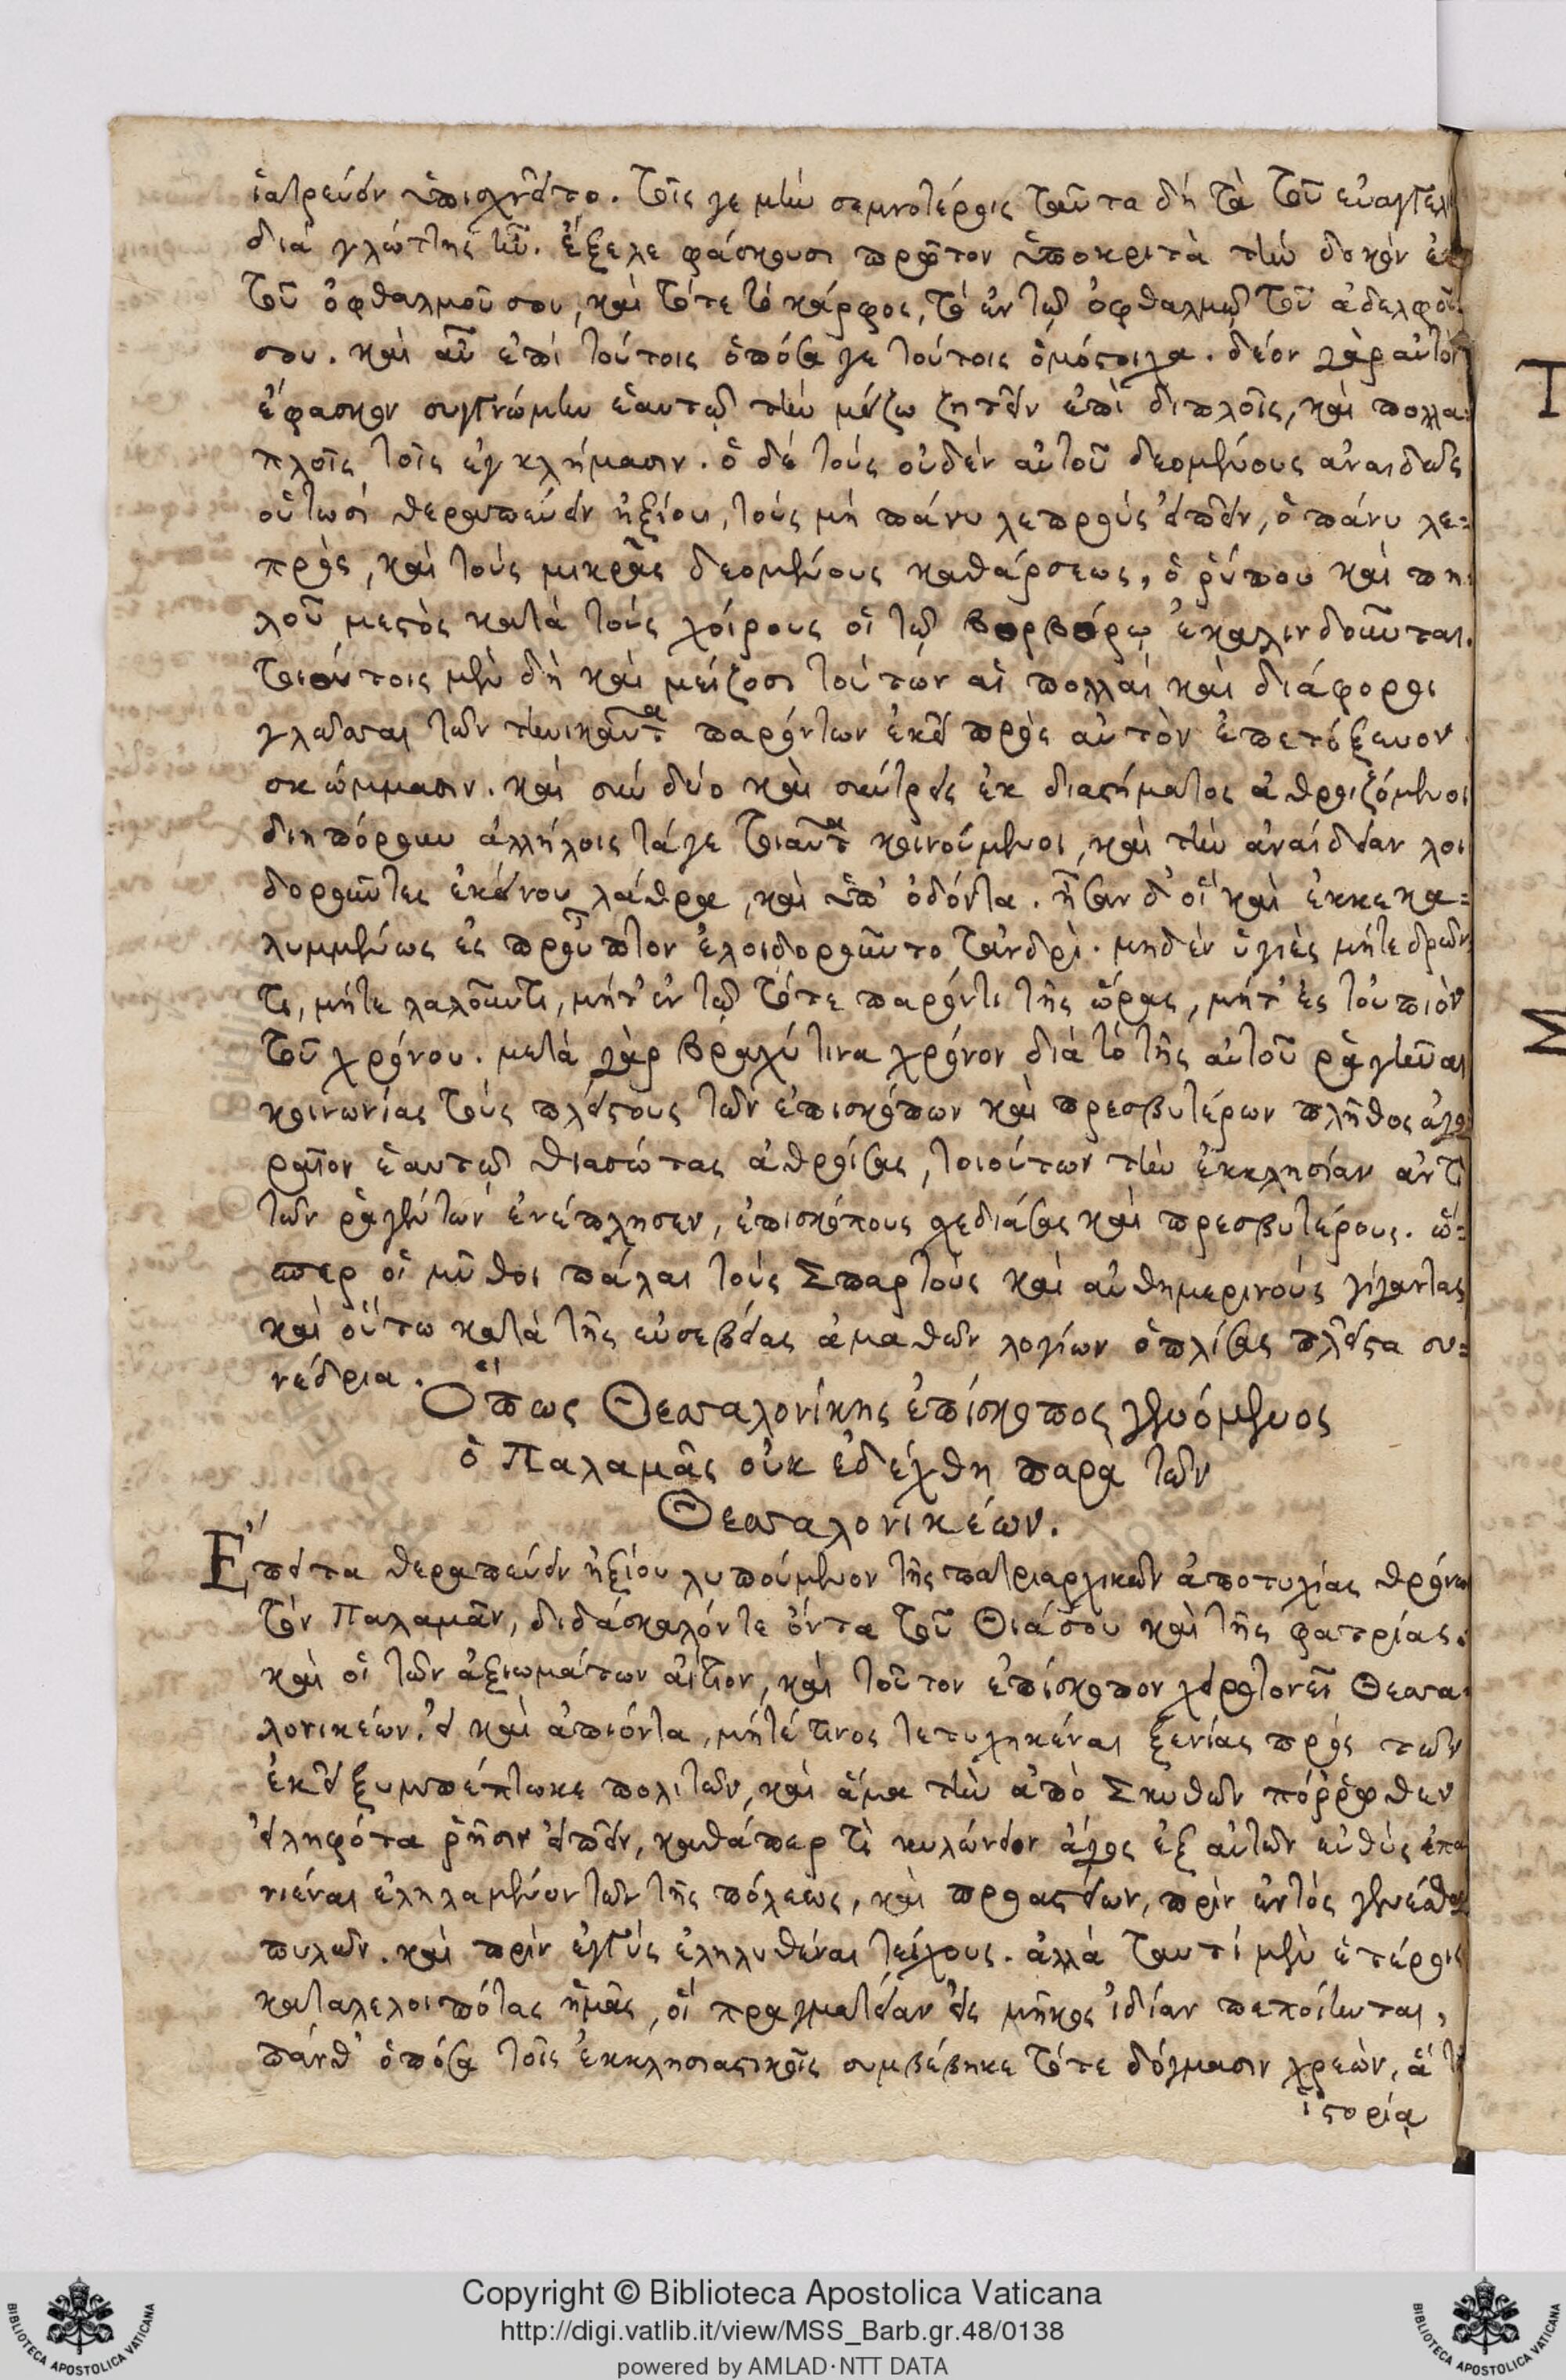 ἰατρεύειν ὑπισχνεῖτο. τοῖς γε μὴν σεμνοτέροις ταῦτα δὴ τὰ τοῦ εὐαγγελί
διὰ γλώττης ἦν. ἔξελε φάσκουσι πρῶτον ὑποκριτὰ τὴν δοκὸν ἐκ
τοῦ ὀφθαλμοῦ σου, καὶ τότε τὸ κάρφος, τὸ ἐν τῷ ὀφθαλμῷ τοῦ ἀδελφοῦ
σου. καὶ αὖ ἐπὶ τούτοις ὁπόσα γε τούτοις ὁμόστοιχα. δέον γὰρ αὐτὸν
ἔφασκον συγγνώμην ἑαυτῷ τὴν μείζω ζητεῖν ἐπὶ διπλοῖς, καὶ πολλα=
πλοῖς τοῖς ἐγκλήμασιν. ὁ δὲ τοὺς οὐδὲν αὐτοῦ δεομένους ἀναιδῶς
οὑτωσὶ θεραπεύειν ἠξίου, τοὺς μὴ πάνυ λεπροὺς εἰπεῖν, ὁ πάνυ λε=
πρὸς, καὶ τοὺς μικρᾶς δεομένους καθάρσεως, ὁ ῥύπου καὶ πη=
λοῦ μεστὸς κατὰ τοὺς χοίρους οἳ τῷ βορβόρῳ ἐκαλινδοῦνται.
τοιούτοις μὲν δὴ καὶ μείζοσι τούτων αἱ πολλαὶ καὶ διάφοροι
γλῶσσαι τῶν τηνικαῦτα παρόντων ἐκεῖ πρὸς αὐτὸν ἐπετόξευον
σκώμμασιν. καὶ σὺν δύο καὶ σύντρεις ἐκ διαστήματος ἀθροιζόμενοι
διηπόρουν ἀλλήλοις τά γε τοιαῦτα κοινούμενοι, καὶ τὴν ἀναίδειαν λοι
δοροῦντες ἐκείνου λάθρα, καὶ ὑπ' ὀδόντα. ἦσαν δ' οἳ καὶ ἐκκεκα=
λυμμένως ἐς προὖπτον ἐλοιδοροῦντο τἀνδρὶ. μηδὲν ὑγιὲς μήτε δρῶν
τι, μήτε λαλοῦντι, μήτ' ἐν τῷ τότε παρόντι τῆς ὥρας, μήτ' ἐς τοὐπιὸν
τοῦ χρόνου. μετὰ γὰρ βραχύ τινα χρόνον διὰ τὸ τῆς αὐτοῦ ῥαγῆναι
κοινωνίας τοὺς πλείστους τῶν ἐπισκόπων καὶ πρεσβυτέρων πλῆθος ἀγο
ραῖον ἑαυτῷ θιασώτας ἀθροίσας, τοιούτων τὴν ἐκκλησίαν ἀντὶ
τῶν ῥαγέντων ἐνέπλησεν, ἐπισκόπους σχεδιάσας καὶ πρεσβυτέρους. ὥ=
σπερ οἱ μῦθοι πάλαι τοὺς Σπαρτοὺς καὶ αὐθημερινοὺς γίγαντας
καὶ οὕτω κατὰ τῆς εὐσεβείας ἀμαθῶν λογίων ὁπλίσας πλεῖστα συ=
νέδρια.
Ὅπως Θεσσαλονίκης ἐπίσκοπος γενόμενος
ὁ Παλαμᾶς οὐκ ἐδέχθη παρὰ τῶν
Θεσσαλονικέων.
Ἔπειτα θεραπεύειν ἠξίου λυπούμενον τῆς πατριαρχικῶν ἀποτυχίας θρόνων
τὸν Παλαμᾶν, διδάσκαλόν τε ὄντα τοῦ Θιάσου καὶ τῆς φατρίας.
καὶ οἱ τῶν ἀξιωμάτων αἴτιον, καὶ τοῦτον ἐπίσκοπον χειροτονεῖ Θεσσα=
λονικέων. εἰ καὶ ἀπιόντα, μήτέ τινος τετυχηκέναι ξενίας πρὸς τῶν
ἐκεῖ ξυμπέπτωκε πολιτῶν, καὶ ἅμα τὴν ἀπὸ Σκυθῶν πόῤῥωθεν
εἰληφότα ῥῆσιν εἰπεῖν, καθάπερ τι κυλώνειον ἄγος ἐξ αὐτῶν εὐθὺς ἐπα
νιέναι ἐληλαμένον τῶν τῆς πόλεως, καὶ προαστείων, πρὶν ἐντὸς γενέσθαι
πυλῶν. καὶ πρὶν ἐγγὺς ἐληλυθέναι τείχους. ἀλλὰ ταυτὶ μὲν ἑτέροις
καταλελοιπότας ἡμᾶς, οἳ πραγματείαν εἰς μῆκος ἰδίαν πεποίηνται,
πάνθ' ὁπόσα τοῖς ἐκκλησιαστικοῖς συμβέβηκε τότε δόγμασιν χρεὼν, ἃ τῇ
ἱστορίᾳ
Copyright © Biblioteca Apostolica Vaticana
http://digi.vatlib.it/view/MSS_Barb.gr.48/0138
powered by AMLAD·NTT DATA
BIBLIOTECA APOSTOLICA VATICANA
BIBLIOTECA APOSTOLICA VATICANA